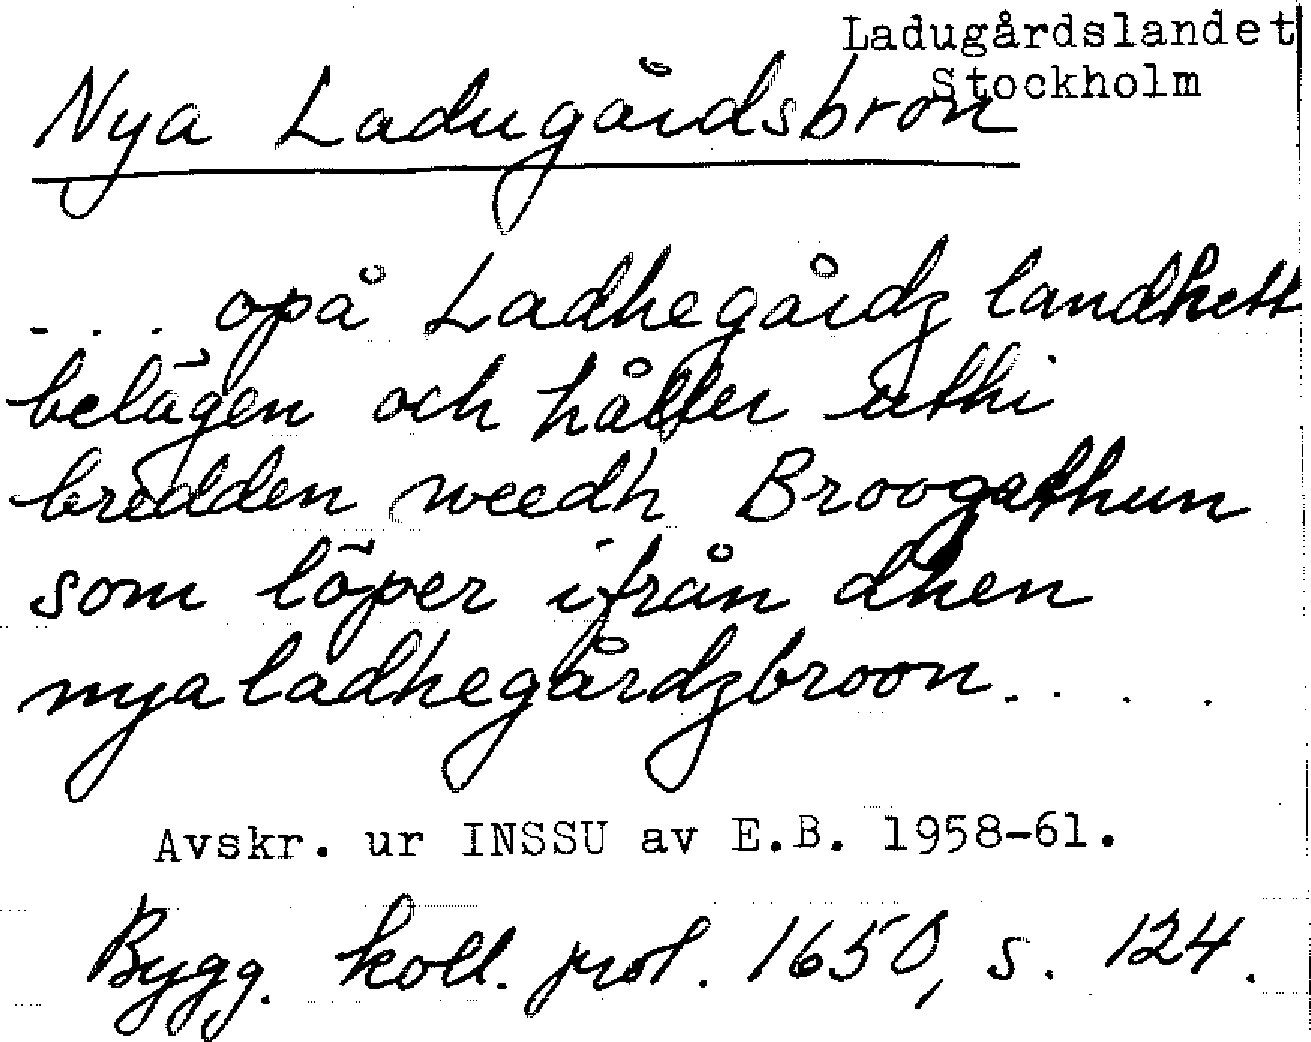 Ladugårdslandet
Stockholm
Nya Ladugårdsbron
. . . opå Ladhegårdz landhett
belägen och håller uthi
bredden weedh Broogathun
som löper ifrån dhen
nya ladhegårdzbroon . . . .
Avskr. ur INSSU av E.B. 1958-61.
Bygg. koll. prot. 1650, s. 124.